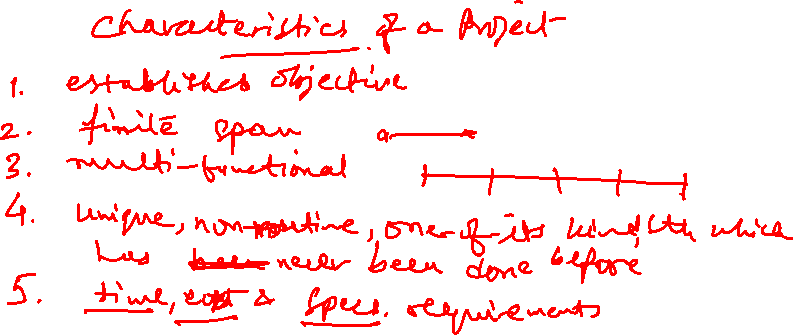 Characteristics of a Project
1. established objective
2. finite span
3. multi-functional
4. unique, non-routine, one-of-its kind, which
has never been done before,
5. time, cost & spec. requirements